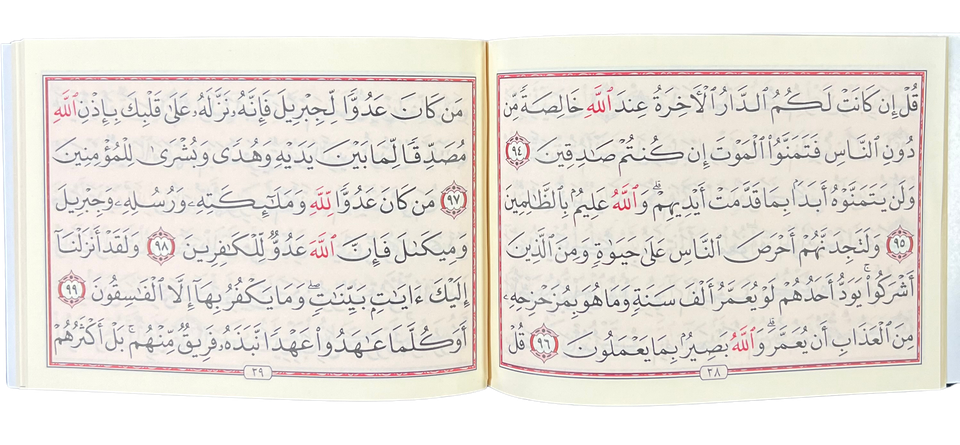 قُلْ إِن كَانَتْ لَكُمُ ٱلدَّارُ ٱلْأَخِرَةُ عِندَ ٱللَّهِ خَالِصَةً مِّن
دُونِ ٱلنَّاسِ فَتَمَنَّوُا۟ ٱلْمَوْتَ إِن كُنتُمْ صَـٰدِقِينَ ٩٤
وَلَن يَتَمَنَّوْهُ أَبَدًۢا بِمَا قَدَّمَتْ أَيْدِيهِمْ ۗ وَٱللَّهُ عَلِيمٌۢ بِٱلظَّـٰلِمِينَ
٩٥ وَلَتَجِدَنَّهُمْ أَحْرَصَ ٱلنَّاسِ عَلَىٰ حَيَوٰةٍ وَمِنَ ٱلَّذِينَ
أَشْرَكُوا۟ ۚ يَوَدُّ أَحَدُهُمْ لَوْ يُعَمَّرُ أَلْفَ سَنَةٍ وَمَا هُوَ بِمُزَحْزِحِهِۦ
مِنَ ٱلْعَذَابِ أَن يُعَمَّرَ ۗ وَٱللَّهُ بَصِيرٌۢ بِمَا يَعْمَلُونَ ٩٦ قُلْ
٢٨
مَن كَانَ عَدُوًّا لِّجِبْرِيلَ فَإِنَّهُۥ نَزَّلَهُۥ عَلَىٰ قَلْبِكَ بِإِذْنِ ٱللَّهِ
مُصَدِّقًا لِّمَا بَيْنَ يَدَيْهِ وَهُدًى وَبُشْرَىٰ لِلْمُؤْمِنِينَ
٩٧ مَن كَانَ عَدُوًّا لِّلَّهِ وَمَلَـٰٓئِكَتِهِۦ وَرُسُلِهِۦ وَجِبْرِيلَ
وَمِيكَىٰلَ فَإِنَّ ٱللَّهَ عَدُوٌّ لِّلْكَـٰفِرِينَ ٩٨ وَلَقَدْ أَنزَلْنَآ
إِلَيْكَ ءَايَـٰتٍۭ بَيِّنَـٰتٍ ۖ وَمَا يَكْفُرُ بِهَآ إِلَّا ٱلْفَـٰسِقُونَ ٩٩
أَوَكُلَّمَا عَـٰهَدُوا۟ عَهْدًا نَّبَذَهُۥ فَرِيقٌ مِّنْهُم ۚ بَلْ أَكْثَرُهُمْ
٢٩